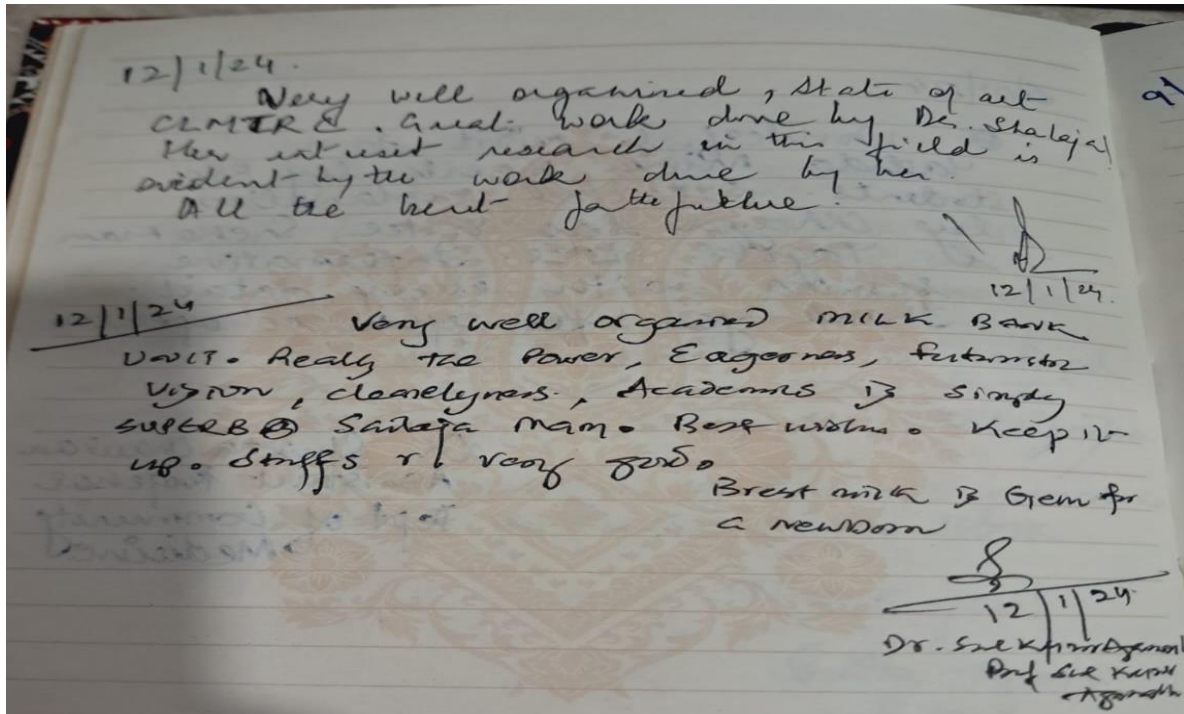 12/1/24.
Very well organised, State of art
CLMTRC. Great work done by Dr. Shalaja
Her interest research in this field is
evident by the work done by her.
All the best for the future.
12/1/24.
12/1/24
Very well organised MILK BANK
Unit. Really The Power, Eagerness, futuristic
Vision, cleanelyness, Academics is simply
SUPERB Sailaja mam. Best wishes. Keep it
up. Staffs r very good.
Brest milk is Gem for
a newborn
12/1/24.
Dr.
Prof